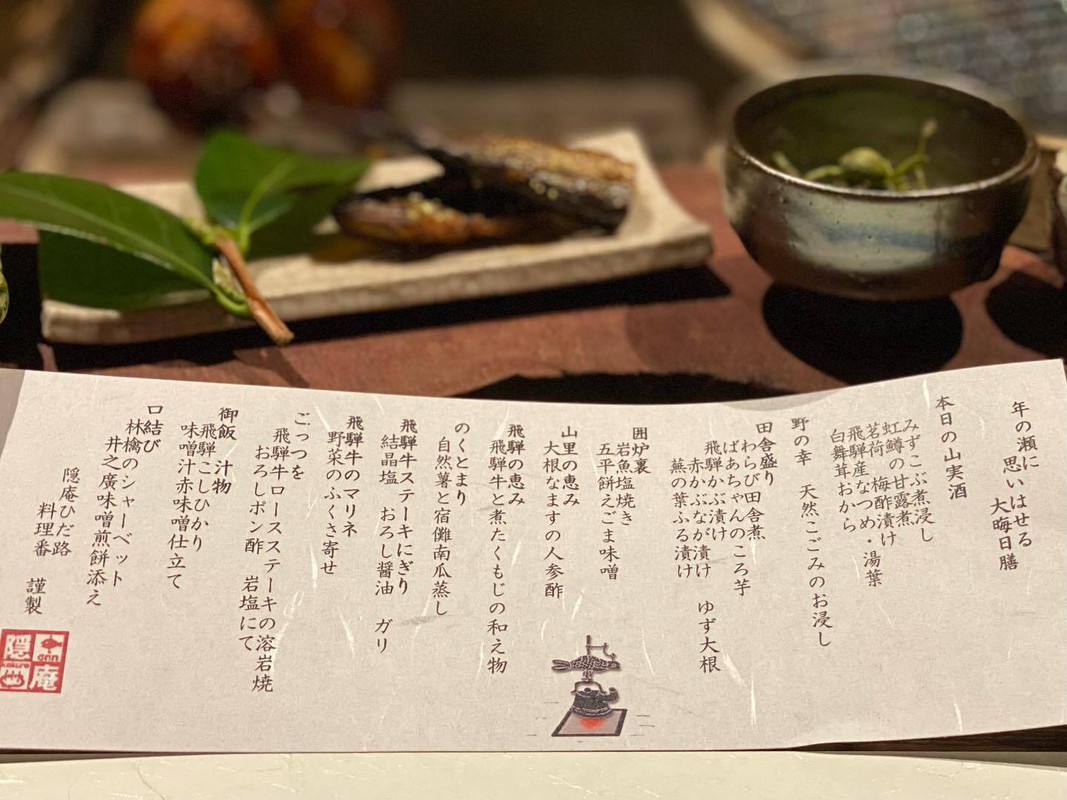 年の瀬に
思いはせる
大晦日膳
本日の山実酒
みずこぶ煮浸し
虹鱒の甘露煮
茗荷 梅酢漬け
飛騨産なつめ・湯葉
白舞茸おから
野の幸 天然こごみのお浸し
田舎盛り
わらび田舎煮
ばあちゃんのころ芋
飛騨かぶ漬け
赤かぶなが漬け ゆず大根
蕪の葉ふる漬け
囲炉裏
岩魚塩焼き
五平餅えごま味噌
山里の恵み
大根なますの人参酢
飛騨の恵み
飛騨牛と煮たくもじの和え物
のくとまり
自然薯と宿儺南瓜蒸し
飛騨牛ステーキにぎり
結晶塩 おろし醤油 ガリ
飛騨牛のマリネ
野菜のふくさ寄せ
ごっつを
飛騨牛ロースステーキの溶岩焼
おろしポン酢 岩塩にて
御飯 汁物
飛騨こしひかり
味噌汁赤味噌仕立て
口結び
林檎のシャーベット
井之廣味噌煎餅添え
隠庵ひだ路
料理番 謹製
隠庵